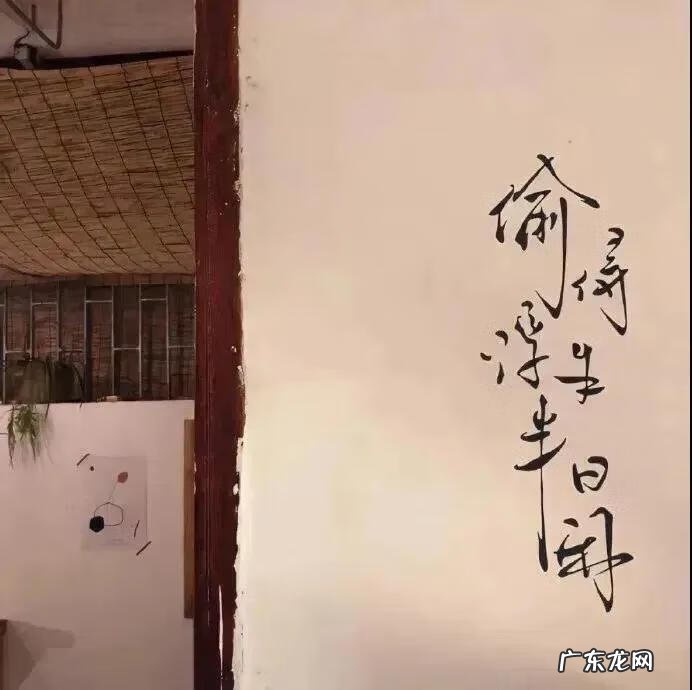 偷得
浮生
半日闲
广东龙网